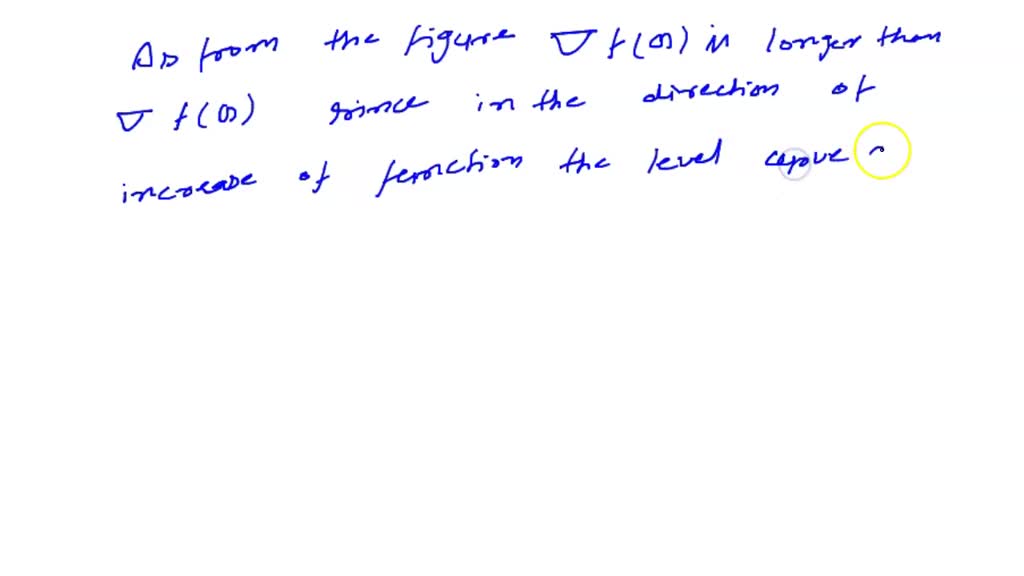 As from the figure ∇ f(0) is longer than
∇ f(0) since in the direction of
increase of function the level cepove